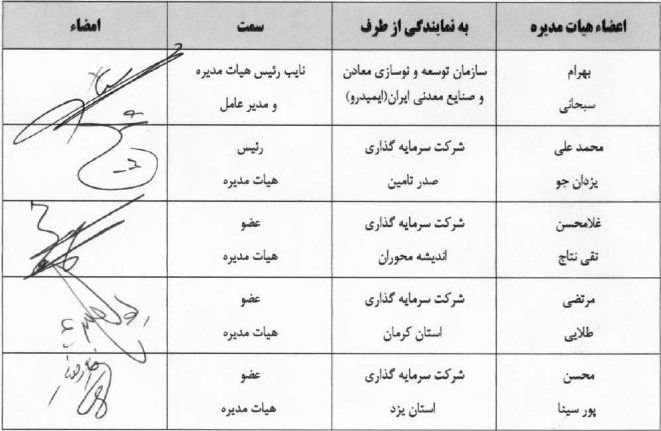 اعضاء هیات مدیره به نمایندگی از طرف سمت امضاء
بهرام سازمان توسعه و نوسازی معادن نایب رئیس هیات مدیره
سبحانی و صنایع معدنی ایران(ایمیدرو) و مدیر عامل
محمد علی شرکت سرمایه گذاری رئیس
یزدان جو صدر تامین هیات مدیره
غلامحسن شرکت سرمایه گذاری عضو
تقی نتاج اندیشه محوران هیات مدیره
مرتضی شرکت سرمایه گذاری عضو
طلایی استان کرمان هیات مدیره
محسن شرکت سرمایه گذاری عضو
پور سینا استان یزد هیات مدیره